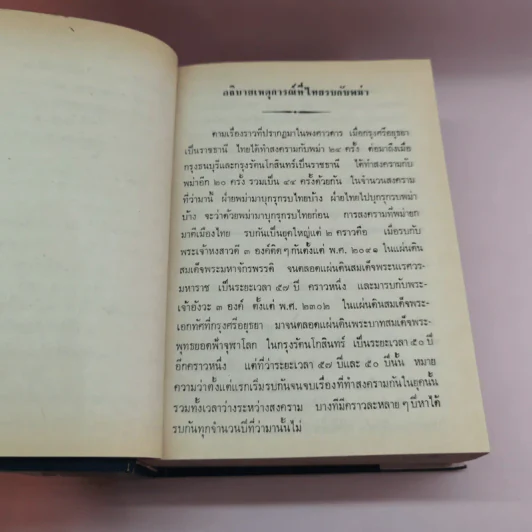 อธิบายเหตุการณ์ที่ไทยรบกับพม่า
ตามเรื่องราวที่ปรากฏมาในพงศาวดาร เมื่อกรุงศรีอยุธยา
เป็นราชธานี ไทยได้ทำสงครามกับพม่า ๒๔ ครั้ง ต่อมาถึงเมื่อ
กรุงธนบุรีและกรุงรัตนโกสินทร์เป็นราชธานี ได้ทำสงครามกับ
พม่าอีก ๒๐ ครั้ง รวมเป็น ๔๔ ครั้งด้วยกัน ในจำนวนสงคราม
ที่ว่ามานี้ ฝ่ายพม่ามาบุกรุกรบไทยบ้าง ฝ่ายไทยไปบุกรุกรบพม่า
บ้าง จะว่าด้วยพม่ามาบุกรุกรบไทยก่อน การสงครามที่พม่ายก
มาตีเมืองไทย รบกันเป็นยุคใหญ่แต่ ๒ คราวคือ เมื่อรบกับ
พระเจ้าหงสาวดี ๓ องค์ติดๆกันตั้งแต่ พ.ศ. ๒๐๙๑ ในแผ่นดิน
สมเด็จพระมหาจักรพรรดิ จนตลอดแผ่นดินสมเด็จพระนเรศวร-
มหาราช เป็นระยะเวลา ๕๗ ปี คราวหนึ่ง และมารบกับพระ-
เจ้าอังวะ ๓ องค์ ตั้งแต่ พ.ศ. ๒๓๐๒ ในแผ่นดินสมเด็จพระ-
เอกทัศที่กรุงศรีอยุธยา มาจนตลอดแผ่นดินพระบาทสมเด็จพระ-
พุทธยอดฟ้าจุฬาโลก ในกรุงรัตนโกสินทร์ เป็นระยะเวลา ๕๐ ปี
อีกคราวหนึ่ง แต่ที่ว่าระยะเวลา ๕๗ ปีและ ๕๐ ปีนั้น หมาย
ความว่าตั้งแต่แรกเริ่มรบกันจนจบเรื่องที่ทำสงครามกันในยุคนั้น
รวมทั้งเวลาว่างระหว่างสงคราม บางทีมีคราวละหลาย ๆ ปีหาได้
รบกันทุกจำนวนปีที่ว่ามานั้นไม่